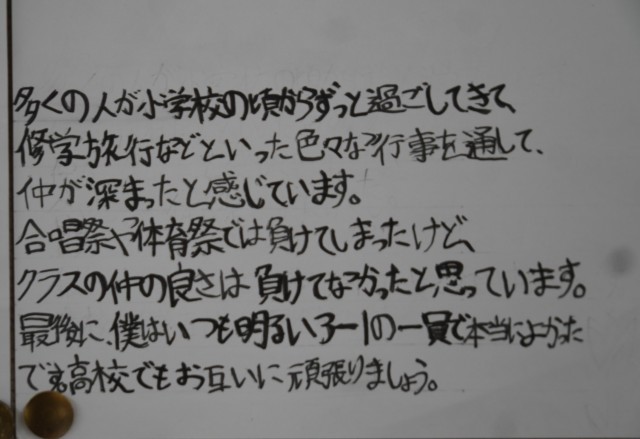 多くの人が小学校の頃からずっと過ごしてきて、
修学旅行などといった色々な行事を通して、
仲が深まったと感じています。
合唱祭や体育祭では負けてしまったけど、
クラスの仲の良さは負けてなかったと思っています。
最後に、僕はいつも明るい3-1の一員で本当によかった
です。高校でもお互いに頑張りましょう。